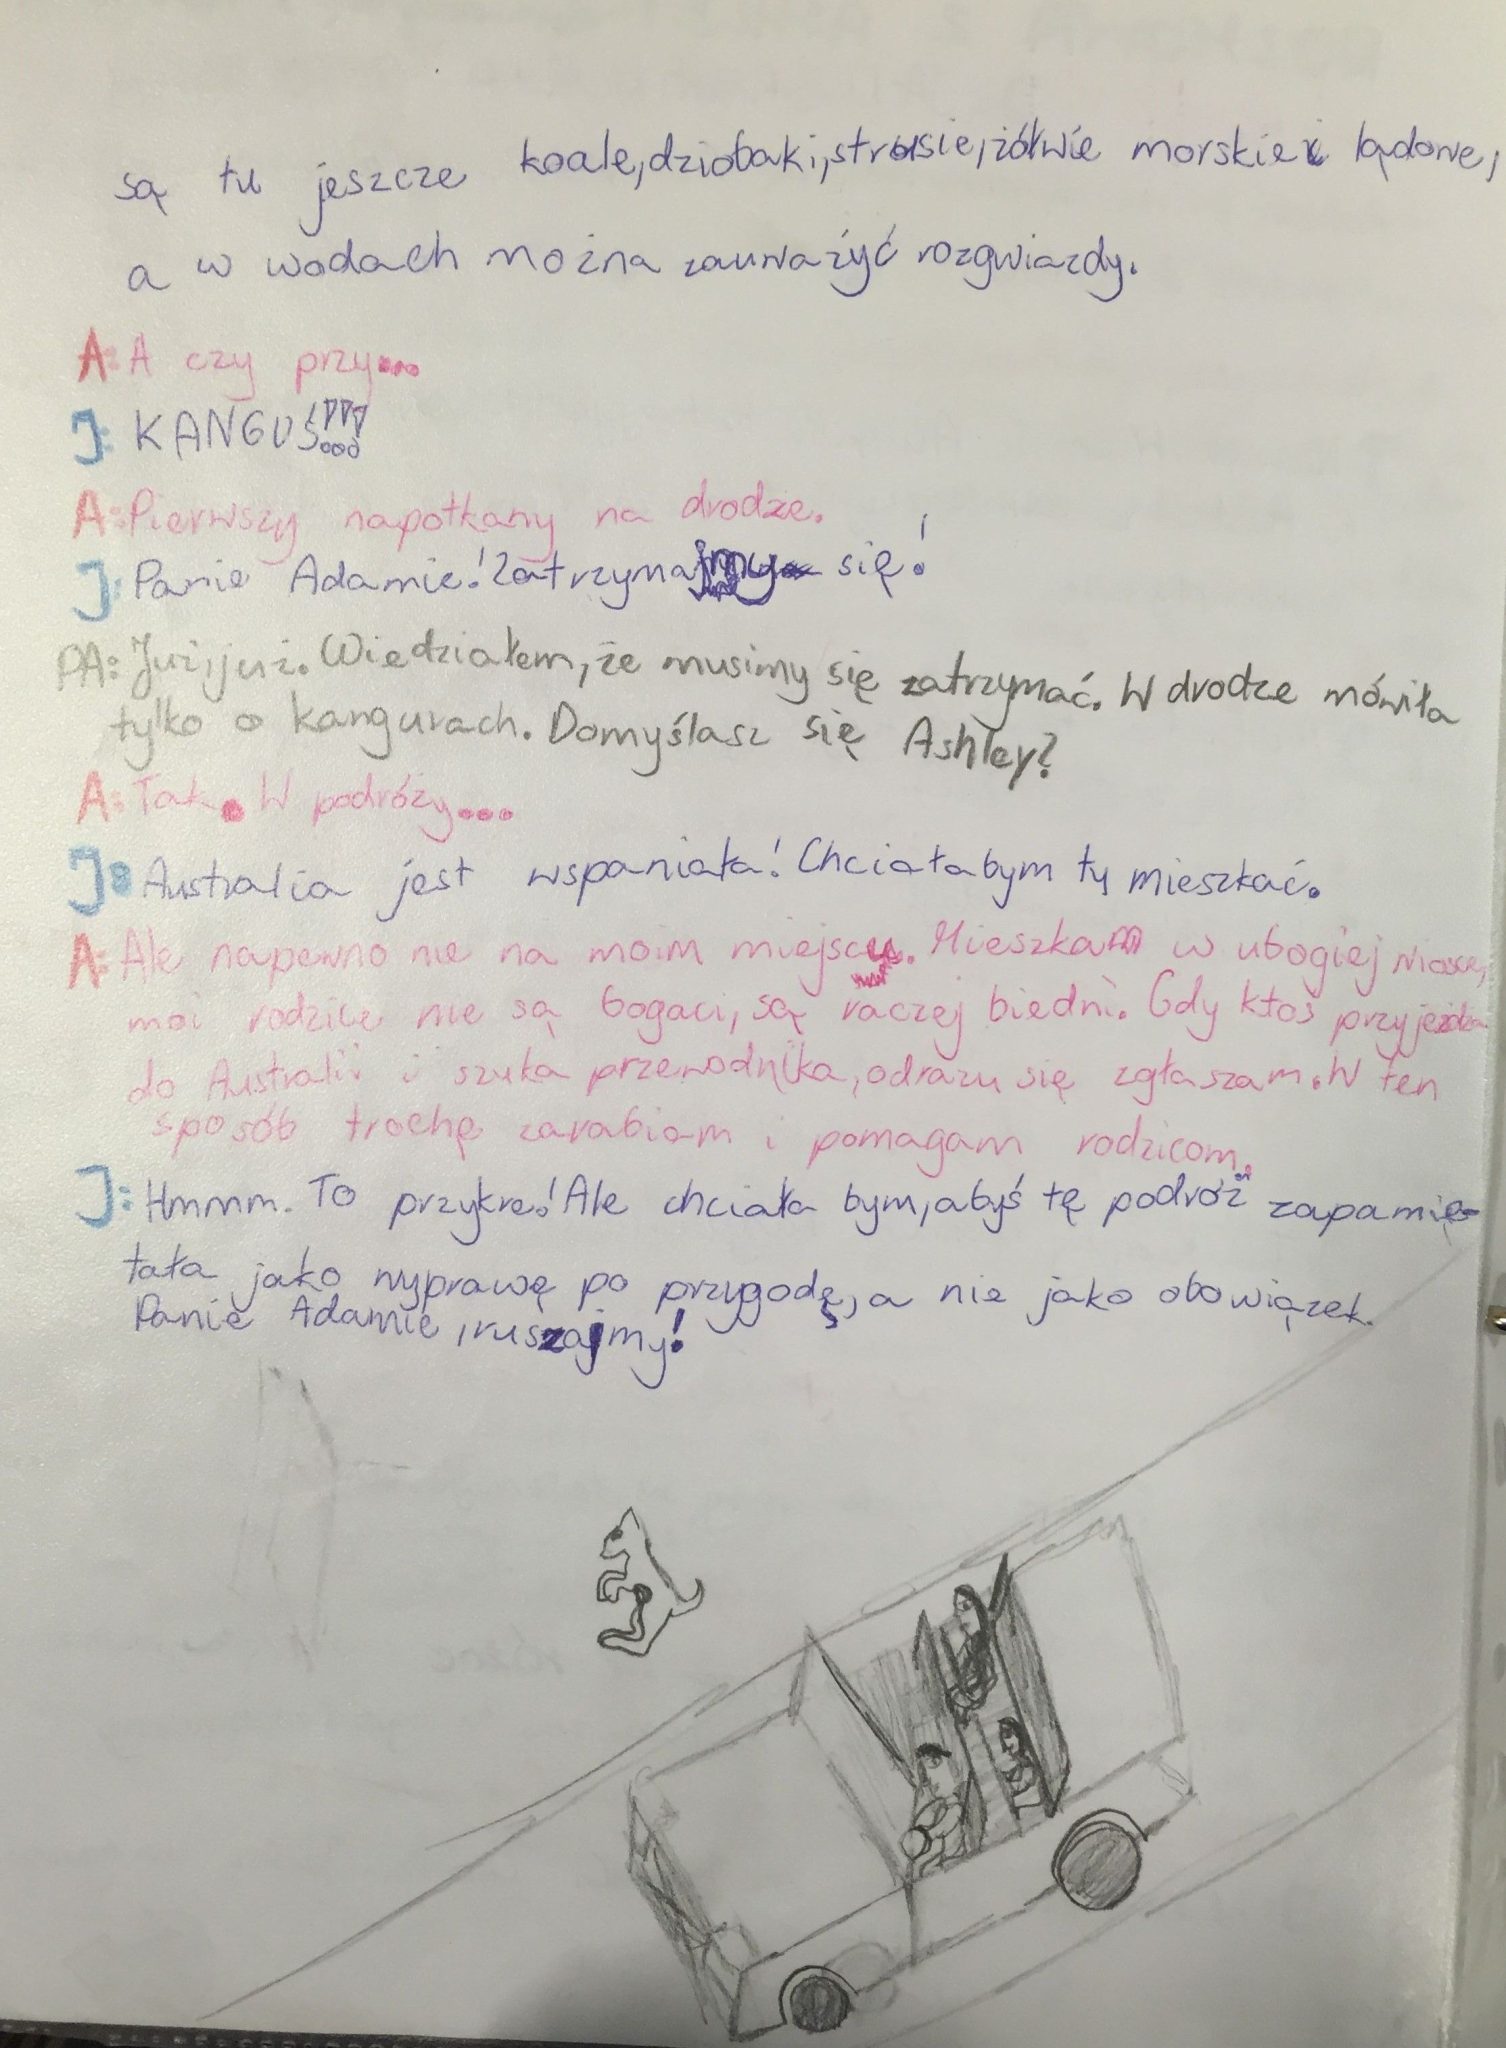 są tu jeszcze koale, dziobaki, strusie, żółwie morskie i lądowe,
a w wodach można zauważyć rozgwiazdy.
A: A czy przy...
J: KANGUŚ!!!
A: Pierwszy napotkany na drodze.
J: Panie Adamie! Zatrzymajmy się!
PA: Już, już. Wiedziałem, że musimy się zatrzymać. W drodze mówiła
tylko o kangurach. Domyślasz się Ashley?
A: Tak. W podróży...
J: Australia jest wspaniała! Chciałabym tu mieszkać.
A: Ale napewno nie na moim miejscu. Mieszkam w ubogiej
moi rodzice nie są bogaci, są raczej biedni. Gdy ktoś przyjeżdża
do Australii i szuka przewodnika, odrazu się zgłaszam. W ten
sposób trochę zarabiam i pomagam rodzicom.
J: Hmmm. To przykre! Ale chciała bym, abyś tę podróż zapamię-
tała jako wyprawę po przygodę, a nie jako obowiązek.
Panie Adamie, ruszajmy!